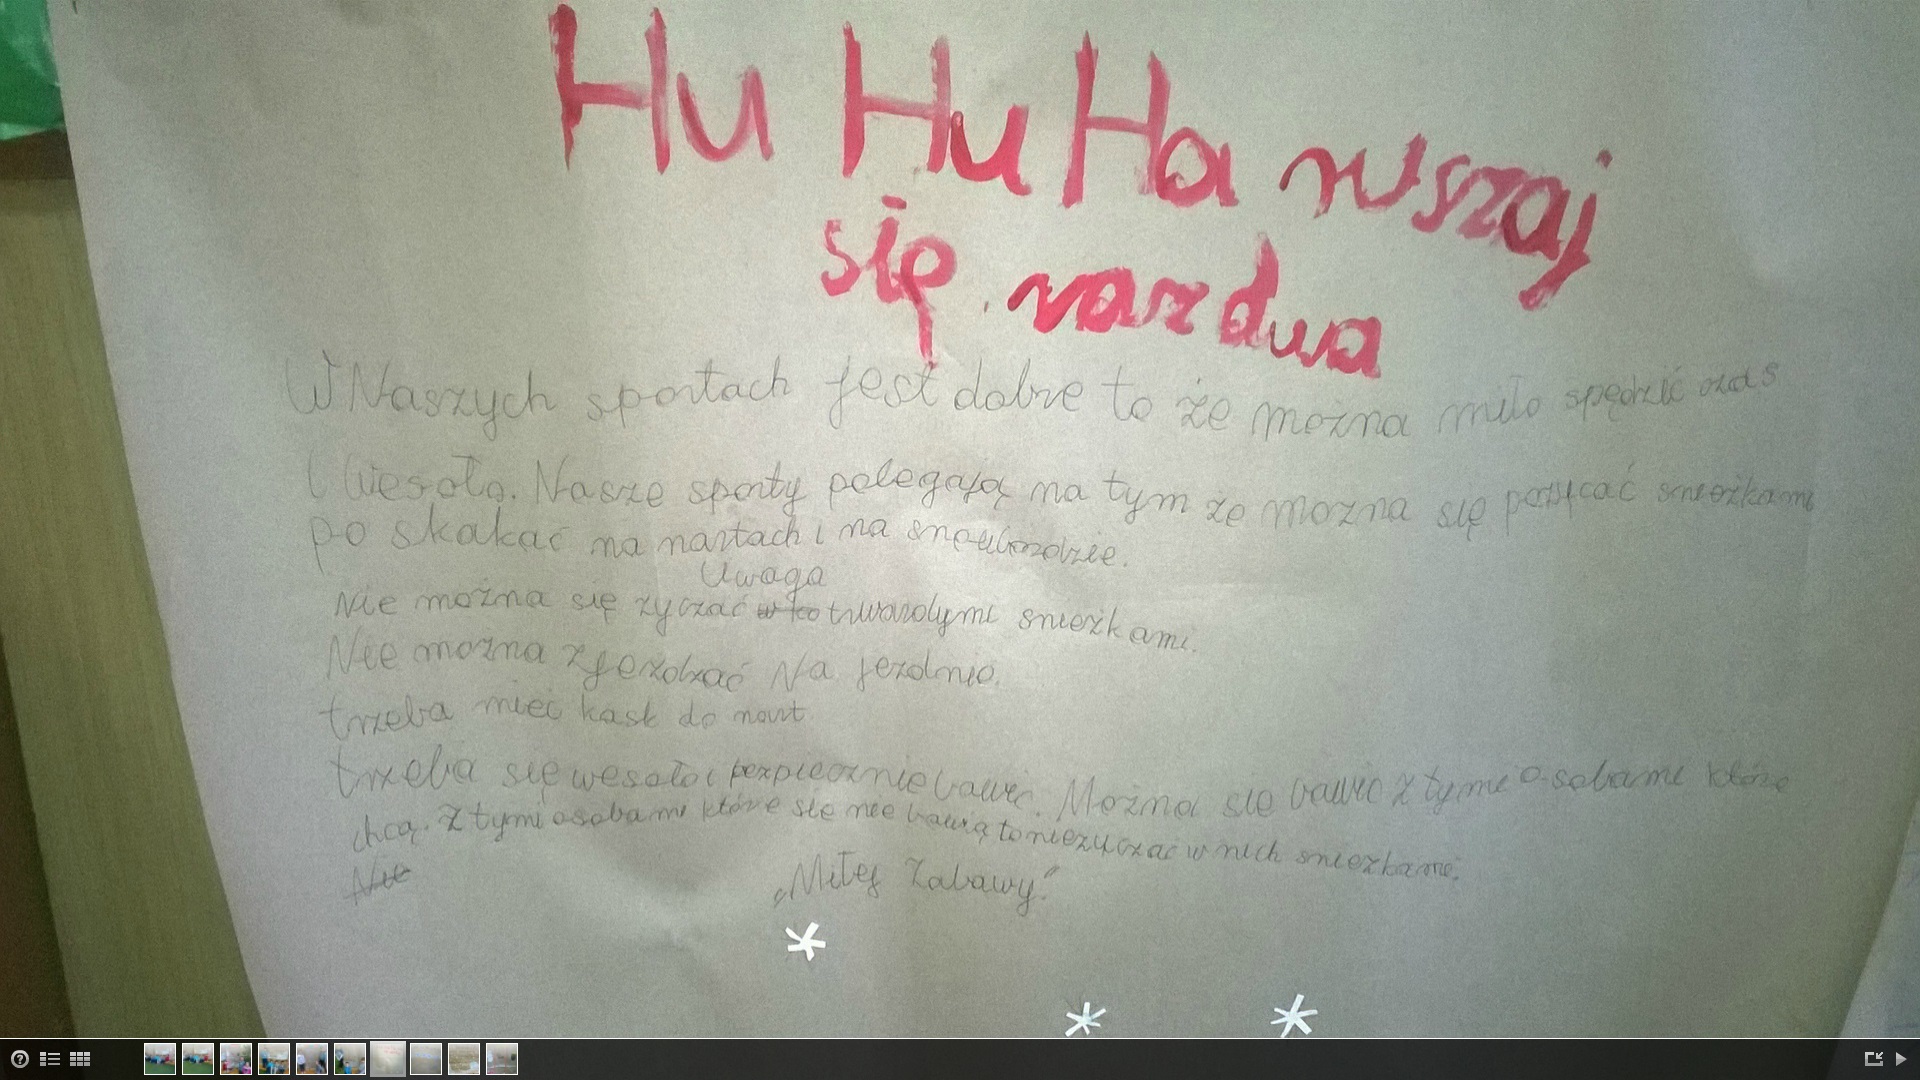 Hu Hu Ha ruszaj
się raz dwa
W Naszych sportach jest dobre to że można miło spędzić czas
i wesoło. Nasze sporty polegają na tym że mozna się pożucać snieżkami
po skakać na nartach i na snoubordzie.
Uwaga
Nie można się zyczać w ko twardymi snieżkami.
Nie można zjezdzać Na jezdnie.
trzeba mieć kask do nart.
trzeba się wesoło i bezpiecznie bawić. Można się bawić z tymi osobami które
chcą. Z tymi osobami które się nie bawią to nie zyczać w nich snieżkami.
Nie
„Miłej Zabawy!"